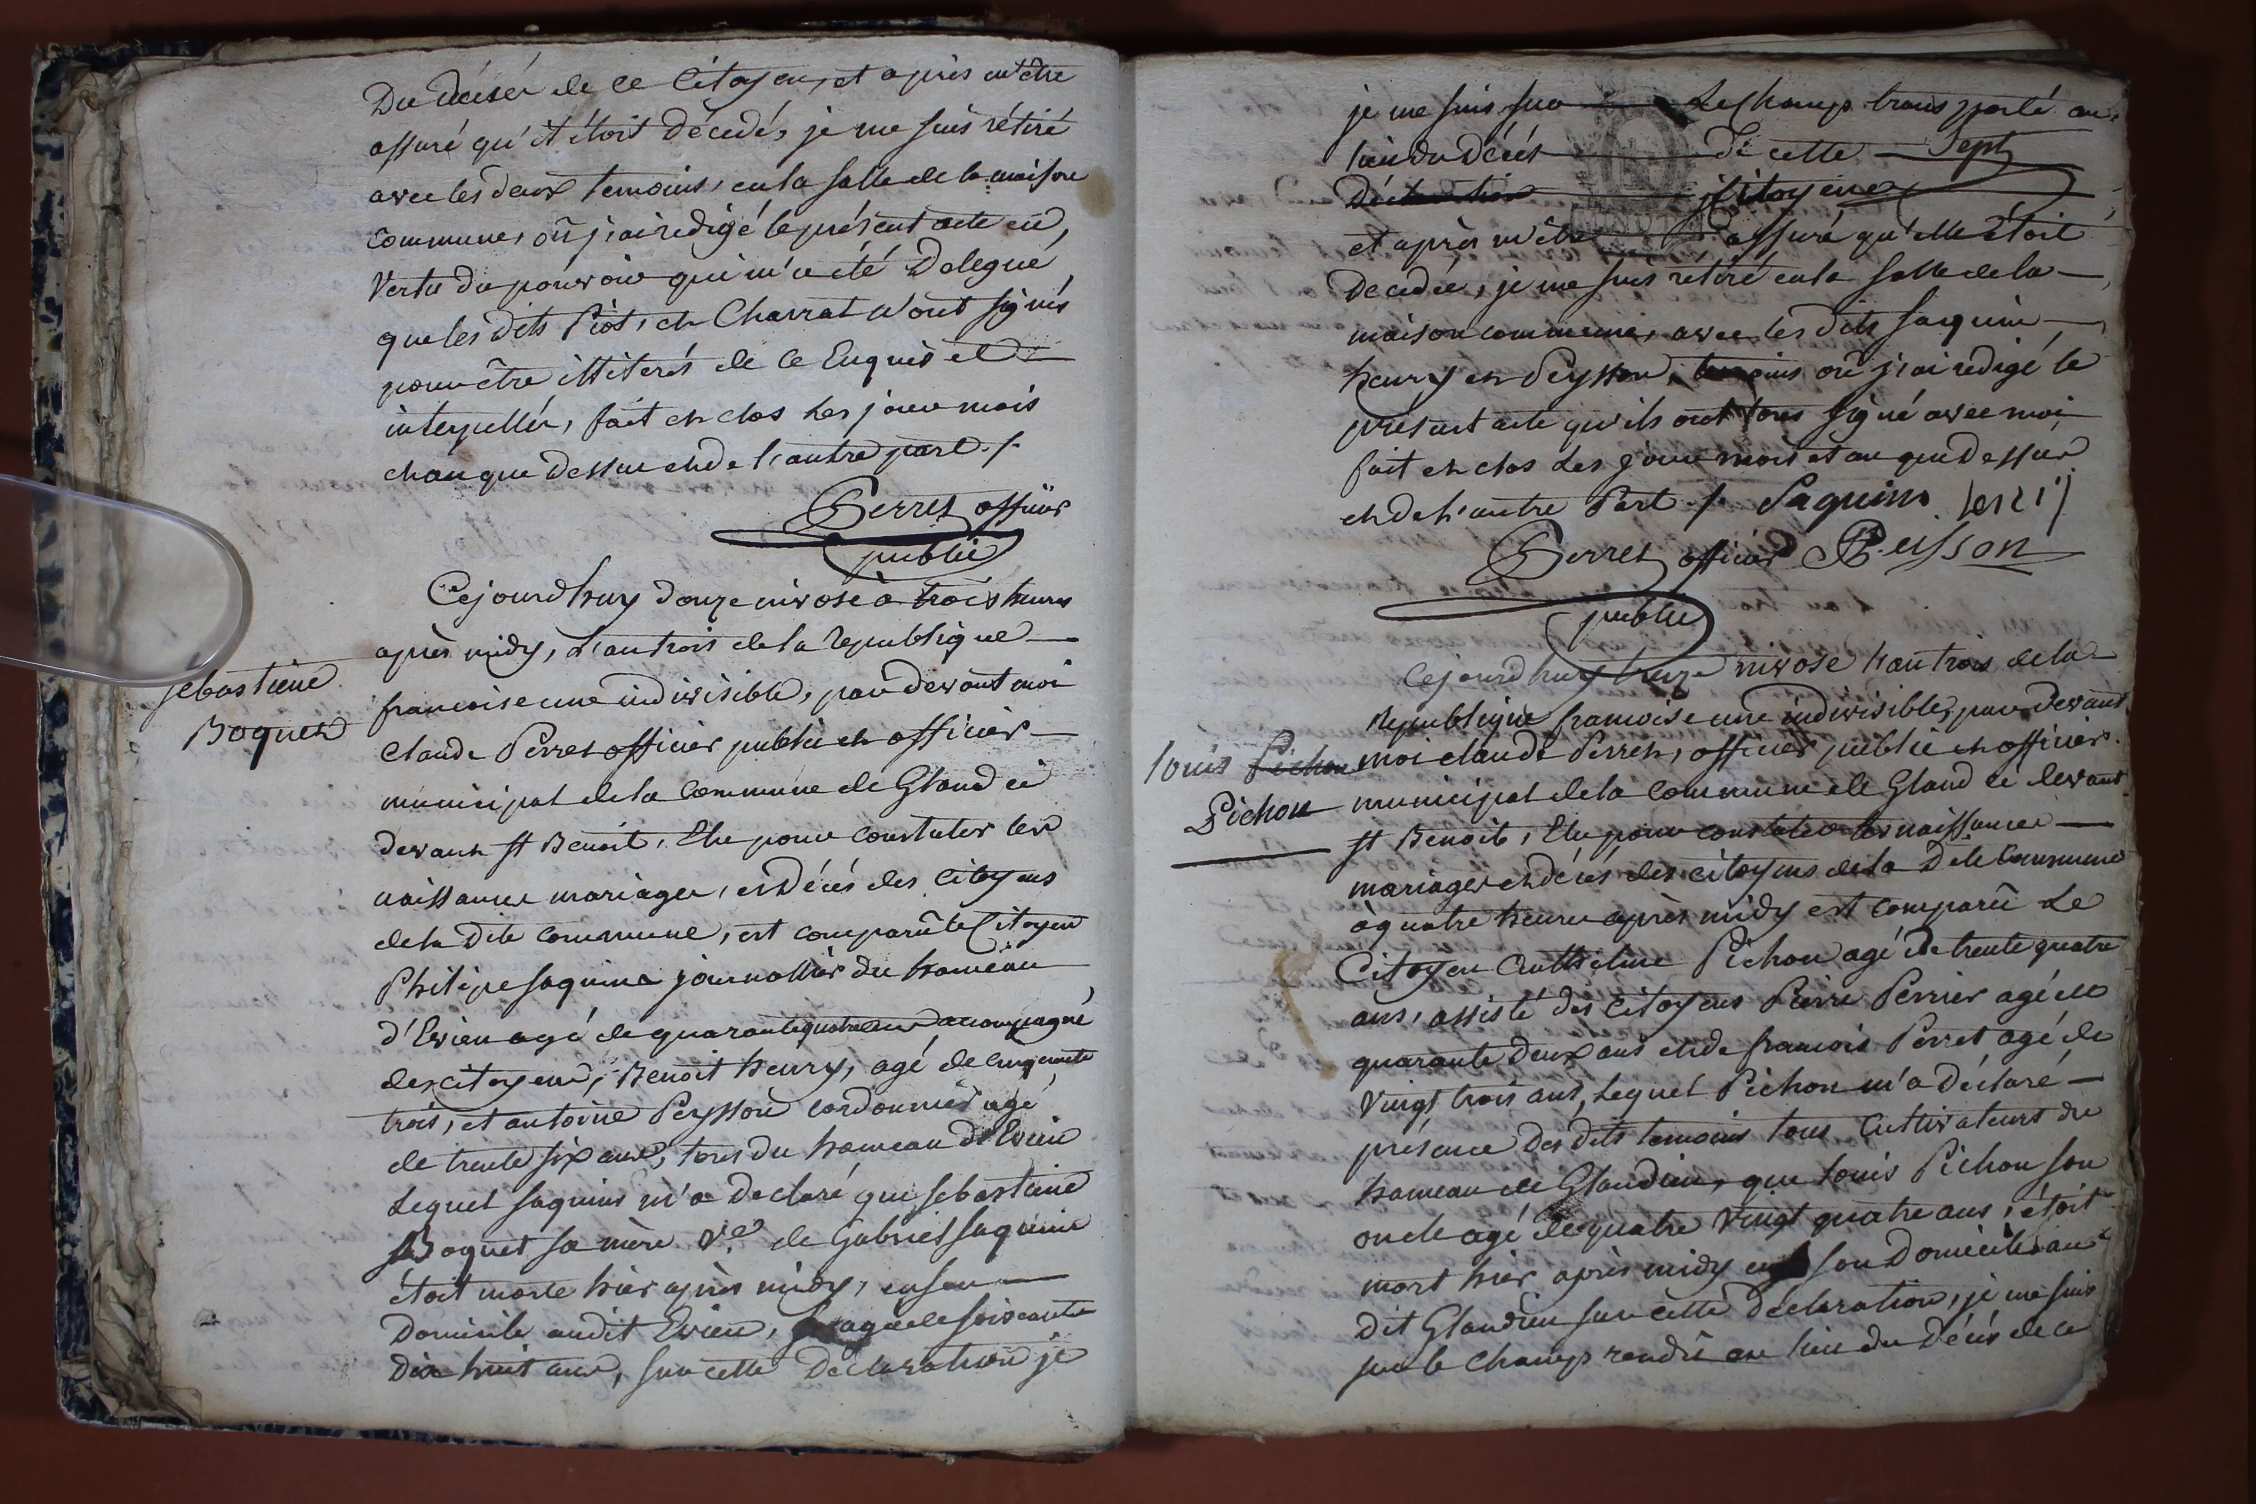 Du décés de ce Citoyen, et après m'être
assuré qu'il étoit décedé, je me suis rétiré
avec les deux temoins, en la salle de la maison
commune, où j'ai redigé le présent acte en
Vertu du pouvoir qui m'a été Delegué,
que les dits Piot, et Charrat n'ont signés
pour être illiterés de ce Enquis et
interpellés, fait et clos les jour mois
et an que dessus et de l'autre part ./.
Perret officier
public
Sebastiene
Boquet
Cejourd'huy douze nivose à trois heures
après midy, L'an trois de la Republique
francoise une indivisible, par devant moi
Claude Perret officier public et officier
municipal de la Commune de Gland ci
devant St Benoit, Elu pour constater les
naissances mariages, et Décés des Citoyens
de la Dite commune, est comparû le Citoyen
Philipe Saquin journallier du hameau
d'Evieu agé de quarante quatre ans accompagné
des citoyens, Benoit henry, agé de cinquante
trois, et antoine Peysson cordonnier agé
de trente six ans, tous du hameau d'Evieu
Lequel Saquin m'a Declaré que Sebastiene
Boquet sa mère Ve. de Gabriel Saquin
étoit morte hier après midy, en son
Domicile audit Evieu, agée de soixante
Dix huit ans, sur cette Declaration je
je me suis sur Le Champ transporté au
lieu du Décés De cette Sept
Déclaration Citoyene
et après m'être assuré qu'elle étoit
Decedée, je me suis rétiré en la salle de la
maison commune, avec les dits Saquin
henry et Peysson, temoins où j'ai redigé le
present acte qu'ils ont tous signé avec moi
fait et clos Les jour mois et an que Dessus
et de l'autre Part ./. Saquin henri
Perret officier Peisson
public
Louis Pichon
Pichon
Cejourd'huy treize nivose L'an trois de la
Republique francoise une indivisible, par Devant
moi claude Perret, officier public et officier
municipal de la Commune de Gland ci devant
St Benoit, Elu pour constater les naissances
mariages et décés des citoyens de la Dite Commune
à quatre heures après midy est comparû Le
Citoyen Anthelme Pichon agé de trente quatre
ans, assisté des Citoyens Pierre Perrier agé de
quarante Deux ans et de francois Perret agé de
Vingt trois ans, Lequel Pichon m'a Déclaré
présence Des dits temoins tous Cultivateurs du
hameau de Glandieu, que Louis Pichon son
oncle agé de quatre Vingt quatre ans, étoit
mort hier après midy en son Domicile au
dit Glandieu sur cette Déclaration, je me suis
sur le Champ rendû au lieu du Décés de ce